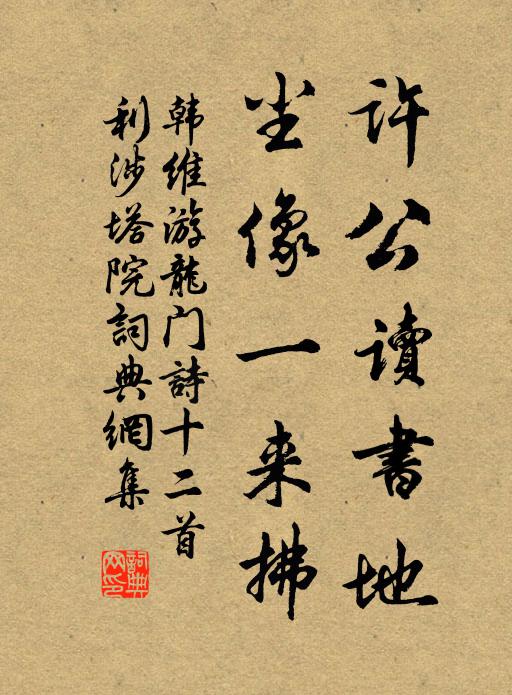 许公讀書地
坐像一来拂
韩维游龍门詩十二首
利涉塔院詞典網集
詞典网印